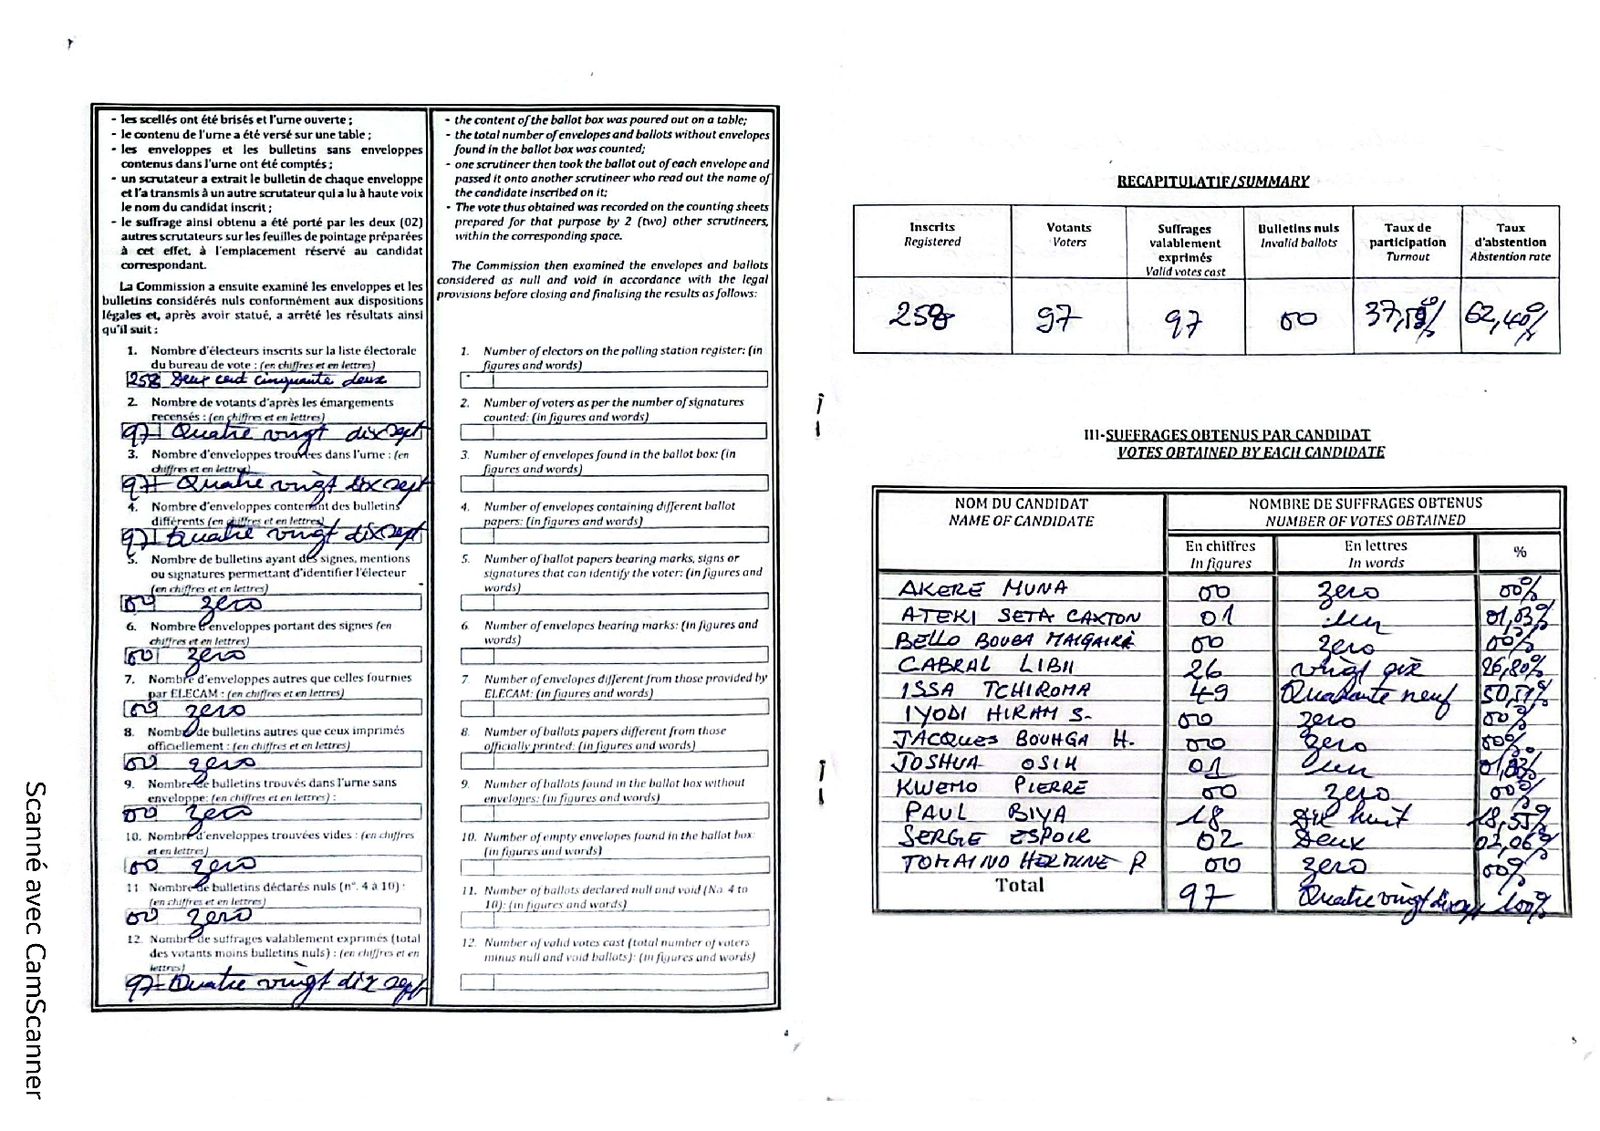 - les scellés ont été brisés et l'urne ouverte ;
- le contenu de l'urne a été versé sur une table ;
- les enveloppes et les bulletins sans enveloppes
contenus dans l'urne ont été comptés ;
- un scrutateur a extrait le bulletin de chaque enveloppe
et l'a transmis à un autre scrutateur qui a lu à haute voix
le nom du candidat inscrit ;
- le suffrage ainsi obtenu a été porté par les deux (02)
autres scrutateurs sur les feuilles de pointage préparées
à cet effet, à l'emplacement réservé au candidat
correspondant.
La Commission a ensuite examiné les enveloppes et les
bulletins considérés nuls conformément aux dispositions
légales et, après avoir statué, a arrêté les résultats ainsi
qu'il suit :
1. Nombre d'électeurs inscrits sur la liste électorale
du bureau de vote : (en chiffres et en lettres)
Deux cent cinquante deux
2. Nombre de votants d'après les émargements
recensés : (en chiffres et en lettres)
97 Quatre vingt dix sept
3. Nombre d'enveloppes trouvées dans l'urne : (en
chiffres et en lettres)
97 Quatre vingt dix sept
4. Nombre d'enveloppes contenant des bulletins
différents (en chiffres et en lettres)
97 Quatre vingt dix sept
5. Nombre de bulletins ayant des signes, mentions
ou signatures permettant d'identifier l'électeur
(en chiffres et en lettres)
00 zero
6. Nombre d'enveloppes portant des signes (en
chiffres et en lettres)
00 zero
7. Nombre d'enveloppes autres que celles fournies
par ELECAM : (en chiffres et en lettres)
00 zero
8. Nombre de bulletins autres que ceux imprimés
officiellement : (en chiffres et en lettres)
00 zero
9. Nombre de bulletins trouvés dans l'urne sans
enveloppe: (en chiffres et en lettres) :
00 zero
10. Nombre d'enveloppes trouvées vides : (en chiffres
et en lettres)
00 zero
11 Nombre de bulletins déclarés nuls (n°. 4 à 10) :
(en chiffres et en lettres)
00 zero
12. Nombre de suffrages valablement exprimés (total
des votants moins bulletins nuls) : (en chiffres et en
lettres)
97 Quatre vingt dix sept
- the content of the ballot box was poured out on a table;
- the total number of envelopes and ballots without envelopes
found in the ballot box was counted;
- one scrutineer then took the ballot out of each envelope and
passed it onto another scrutineer who read out the name of
the candidate inscribed on it;
- The vote thus obtained was recorded on the counting sheets
prepared for that purpose by 2 (two) other scrutineers,
within the corresponding space.
The Commission then examined the envelopes and ballots
considered as null and void in accordance with the legal
provisions before closing and finalising the results as follows:
1. Number of electors on the polling station register: (in
figures and words)
2. Number of voters as per the number of signatures
counted: (in figures and words)
3. Number of envelopes found in the ballot box: (in
figures and words)
4. Number of envelopes containing different ballot
papers: (in figures and words)
5. Number of ballot papers bearing marks, signs or
signatures that can identify the voter: (in figures and
words)
6. Number of envelopes bearing marks: (in figures and
words)
7 Number of envelopes different from those provided by
ELECAM: (in figures and words)
8. Number of ballots papers different from those
officially printed: (in figures and words)
9. Number of ballots found in the ballot box without
envelopes: (in figures and words)
10. Number of empty envelopes found in the ballot box:
(in figures and words)
11. Number of ballots declared null and void (No 4 to
10): (in figures and words)
12. Number of valid votes cast (total number of voters
minus null and void ballots): (in figures and words)
RECAPITULATIF/SUMMARY
Inscrits
Registered
Votants
Voters
Suffrages
valablement
exprimés
Valid votes cast
Bulletins nuls
Invalid ballots
Taux de
participation
Turnout
Taux
d'abstention
Abstention rate
97 97 00 62,40%
III-SUFFRAGES OBTENUS PAR CANDIDAT
VOTES OBTAINED BY EACH CANDIDATE
NOM DU CANDIDAT
NAME OF CANDIDATE
NOMBRE DE SUFFRAGES OBTENUS
NUMBER OF VOTES OBTAINED
En chiffres
In figures
En lettres
In words
%
AKERE MUNA 00 zero 00%
ATEKI SETA CAXTON 01 un 01,03%
BELLO BOUBA MAIGAIRI 00 zero 00%
CABRAL LIBII 26 vingt six 26,80%
ISSA TCHIROMA 49 Quarante neuf 50,51%
IYODI HIRAM S. 00 zero 00%
JACQUES BOUHGA H. 00 zero 00%
JOSHUA OSIH 01 un 01,03%
KWEMO PIERRE 00 zero 00%
PAUL BIYA 18 Dix huit 18,55%
SERGE ESPOIR 02 Deux 02,06%
TOMAINO HERMINE P 00 zero 00%
Total 97 Quatre vingt dix sept 100%
Scanné avec CamScanner